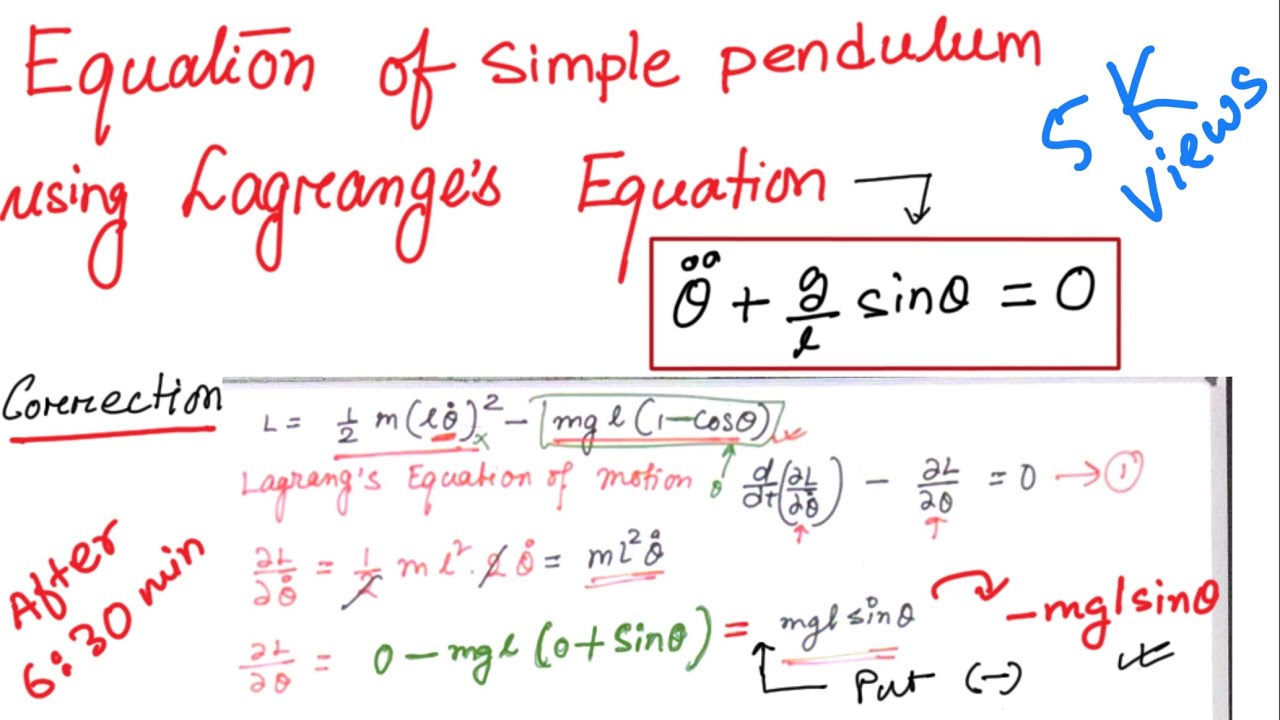 Equation of simple pendulum
using Lagreange's Equation
5K
Views
θ̈ + g/l sinθ = 0
Correction
L = 1/2 m(lθ̇)² - mgl(1-cosθ)
Lagrang's Equation of motion d/dt(∂L/∂θ̇) - ∂L/∂θ = 0 → ①
∂L/∂θ̇ = 1/2 ml². 2θ̇ = ml²θ̇
After
6:30 min
∂L/∂θ = 0 - mgl(0 + Sinθ) = mgl sinθ
-mglsinθ
Put (-)